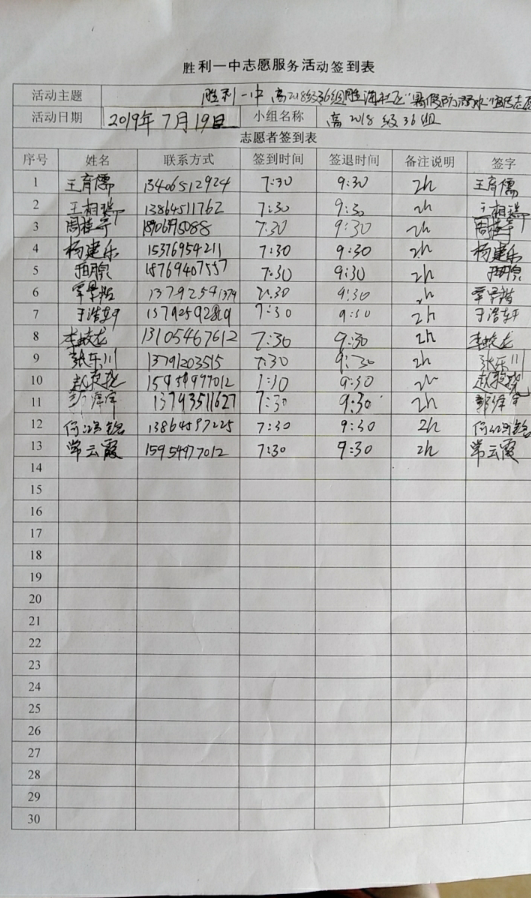 胜利一中志愿服务活动签到表
活动主题 胜利一中高2018级36组胜海社区"暑假防溺水"
活动日期 2019年7月19日 小组名称 高2018级36组
志愿者签到表
序号 姓名 联系方式 签到时间 签退时间 备注说明 签字
1 王育儒 13406512924 7:30 9:30 2h 王育儒
2 王相瑞 13864511762 7:30 9:30 2h 王相瑞
3 7:30 9:30 2h
4 杨建乐 15376954211 7:30 9:30 2h 杨建乐
5 18769407557 7:30 9:30 2h
6 9:30 2h
7 7:30 9:30 2h
8 13105467612 7:30 9:30 2h
9 张乐川 13791203515 7:30 9:30 2h 张乐川
10 15954977012 9:30 2h
11 13793511627 7:30 9:30 2h
12 13864597225 7:30 9:30 2h
13 常云霞 15954977012 7:30 9:30 2h 常云霞
14
15
16
17
18
19
20
21
22
23
24
25
26
27
28
29
30